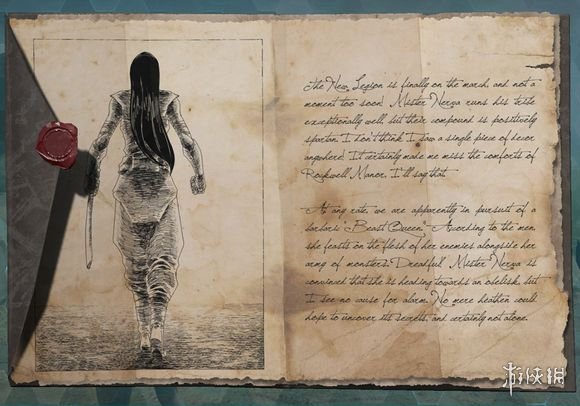 The New Legion is finally on the march, and not a
moment too soon! Mister Nerva runs his tribe
exceptionally well, but their compound is positively
spartan. I don't think I saw a single piece of decor
anywhere! It certainly made me miss the comforts of
Rockwell Manor, I'll say that.
At any rate, we are apparently in pursuit of a
barbaric "Beast Queen." According to the men,
she feasts on the flesh of her enemies alongside her
army of monsters. Dreadful. Mister Nerva is
convinced that she is heading towards an obelisk, but
I see no cause for alarm. No mere heathen could
hope to uncover its secrets, and certainly not alone.
游侠网